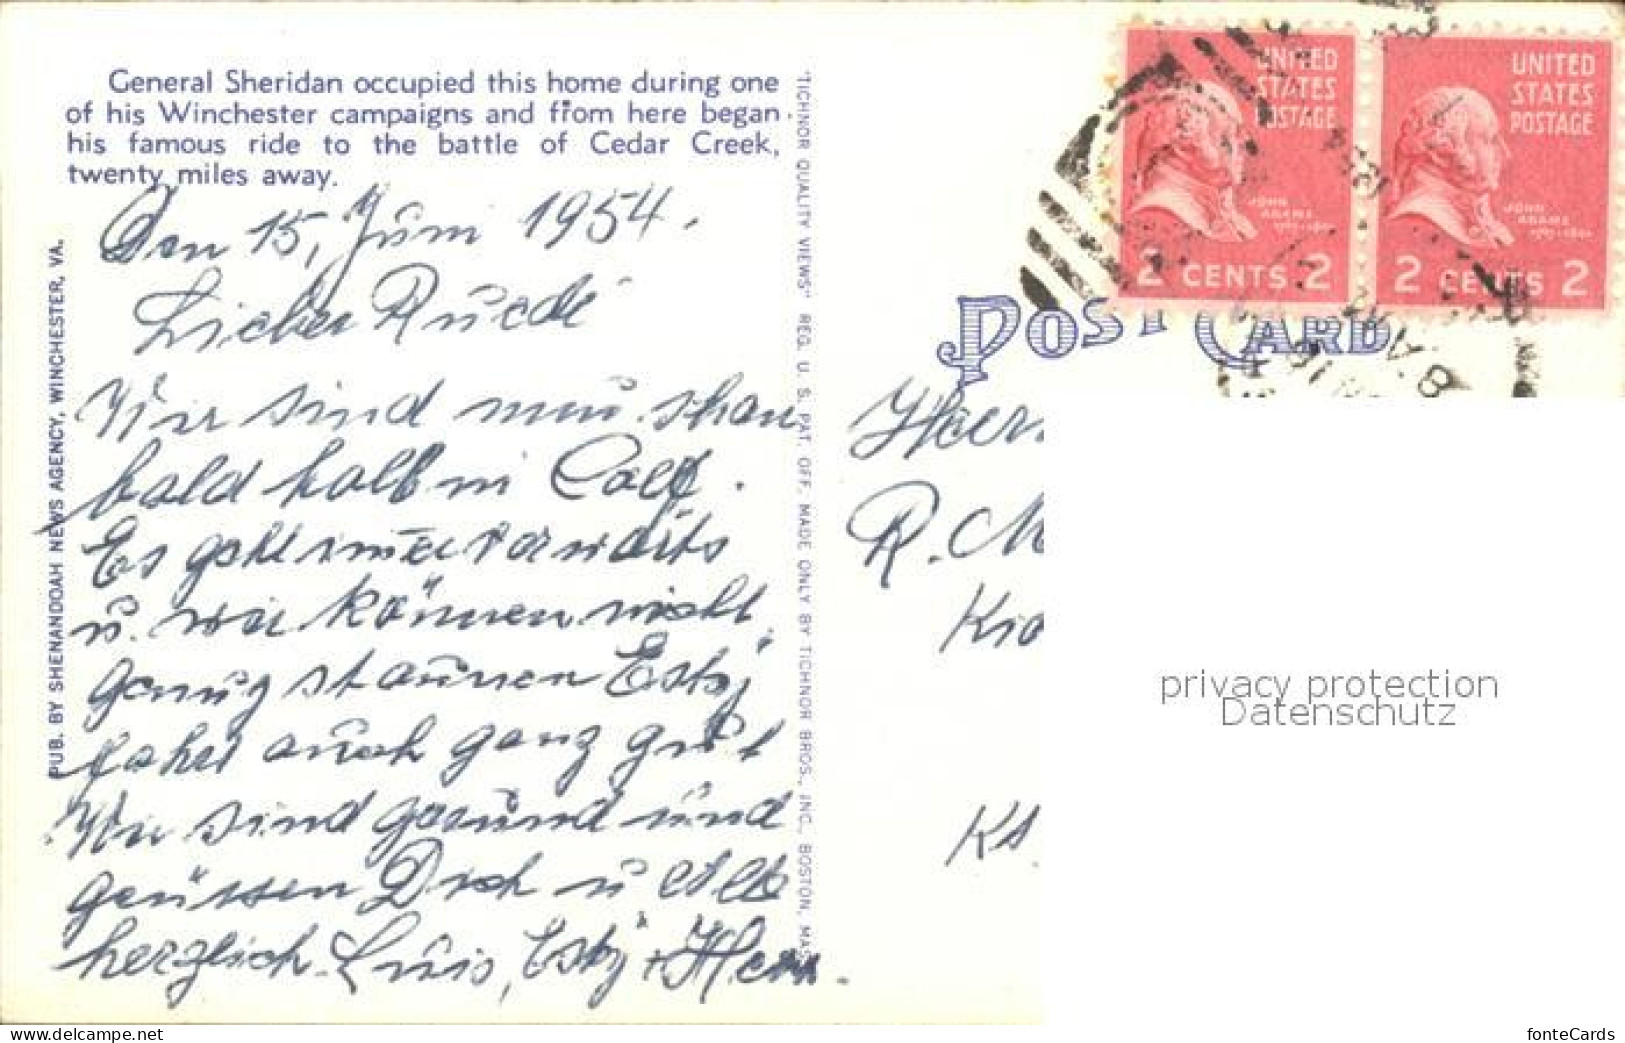 General Sheridan occupied this home during one
of his Winchester campaigns and ffrom here began
his famous ride to the battle of Cedar Creek,
twenty miles away.
PUB. BY SHENANDOAH NEWS AGENCY, WINCHESTER, VA.
Den 15, Juni 1954.
Lieber Ruedi
Wir sind nun schon
bald halb in Calf.
Es geht immer vorwärts
u. wir können nicht
genug staunen Esty
fahrt auch ganz gut
Wir sind gesund und
grüssen Dich u alle
herzlich Luis, Esty +
"TICHNOR QUALITY VIEWS" REG. U. S. PAT. OFF. MADE ONLY BY TICHNOR BROS., INC., BOSTON, MASS.
UNITED
STATES
POSTAGE
JOHN
ADAMS
2 CENTS 2
UNITED
STATES
POSTAGE
JOHN
ADAMS
2 CENTS 2
1954
POST CARD
Herr
R. M
Kt.
privacy protection
Datenschutz
www.delcampe.net
fonteCards